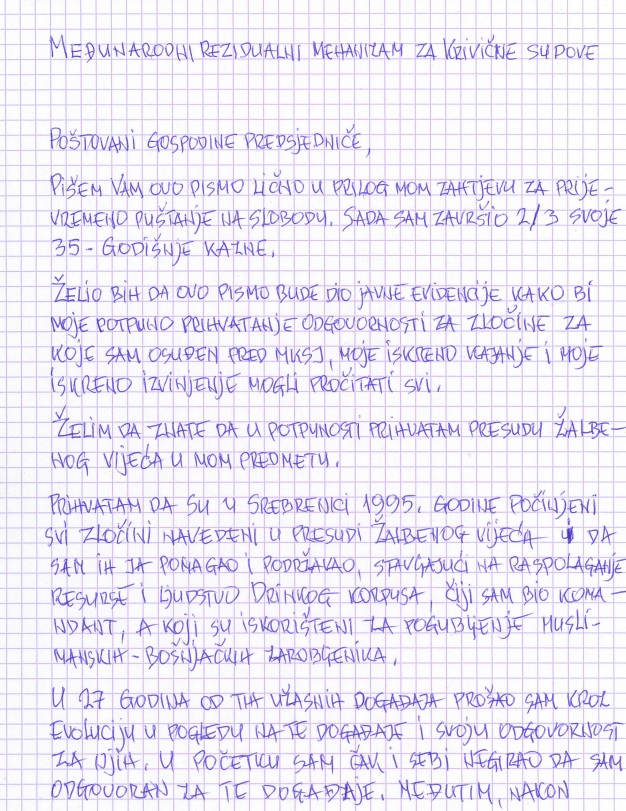 MEĐUNARODNI REZIDUALNI MEHANIZAM ZA KRIVIČNE SUDOVE
POŠTOVANI GOSPODINE PREDSJEDNIČE,
PIŠEM VAM OVO PISMO LIČNO U PRILOG MOM ZAHTJEVU ZA PRIJE-
VREMENO PUŠTANJE NA SLOBODU. SADA SAM ZAVRŠIO 2/3 SVOJE
35-GODIŠNJE KAZNE.
ŽELIO BIH DA OVO PISMO BUDE DIO JAVNE EVIDENCIJE KAKO BI
MOJE POTPUNO PRIHVATANJE ODGOVORNOSTI ZA ZLOČINE ZA
KOJE SAM OSUĐEN PRED MKSJ, MOJE ISKRENO KAJANJE I MOJE
ISKRENO IZVINJENJE MOGLI PROČITATI SVI.
ŽELIM DA ZNATE DA U POTPUNOSTI PRIHVATAM PRESUDU ŽALBE-
NOG VIJEĆA U MOM PREDMETU.
PRIHVATAM DA SU U SREBRENICI 1995. GODINE POČINJENI
SVI ZLOČINI NAVEDENI U PRESUDI ŽALBENOG VIJEĆA I DA
SAM IH JA POMAGAO I PODRŽAVAO, STAVLJAJUĆI NA RASPOLAGANJE
RESURSE I LJUDSTVO DRINKOG KORPUSA, ČIJI SAM BIO KOMA-
NDANT, A KOJI SU ISKORIŠTENI ZA POGUBLJENJE MUSLI-
MANSKIH-BOŠNJAČKIH ZAROBLJENIKA.
U 27 GODINA OD TIH UŽASNIH DOGAĐAJA PROŠAO SAM KROZ
EVOLUCIJU U POGLEDU NA TE DOGAĐAJE I SVOJU ODGOVORNOST
ZA NJIH. U POČETKU SAM ČAK I SEBI NEGIRAO DA SAM
ODGOVORAN ZA TE DOGAĐAJE. MEĐUTIM, NAKON